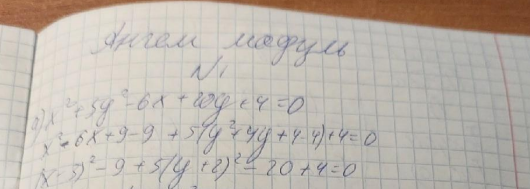 Ангем модуль
N1
а) x² + 5y² - 6x + 20y + 4 = 0
x² - 6x + 9 - 9 + 5(y² + 4y + 4 - 4) + 4 = 0
(x - 3)² - 9 + 5(y + 2)² - 20 + 4 = 0